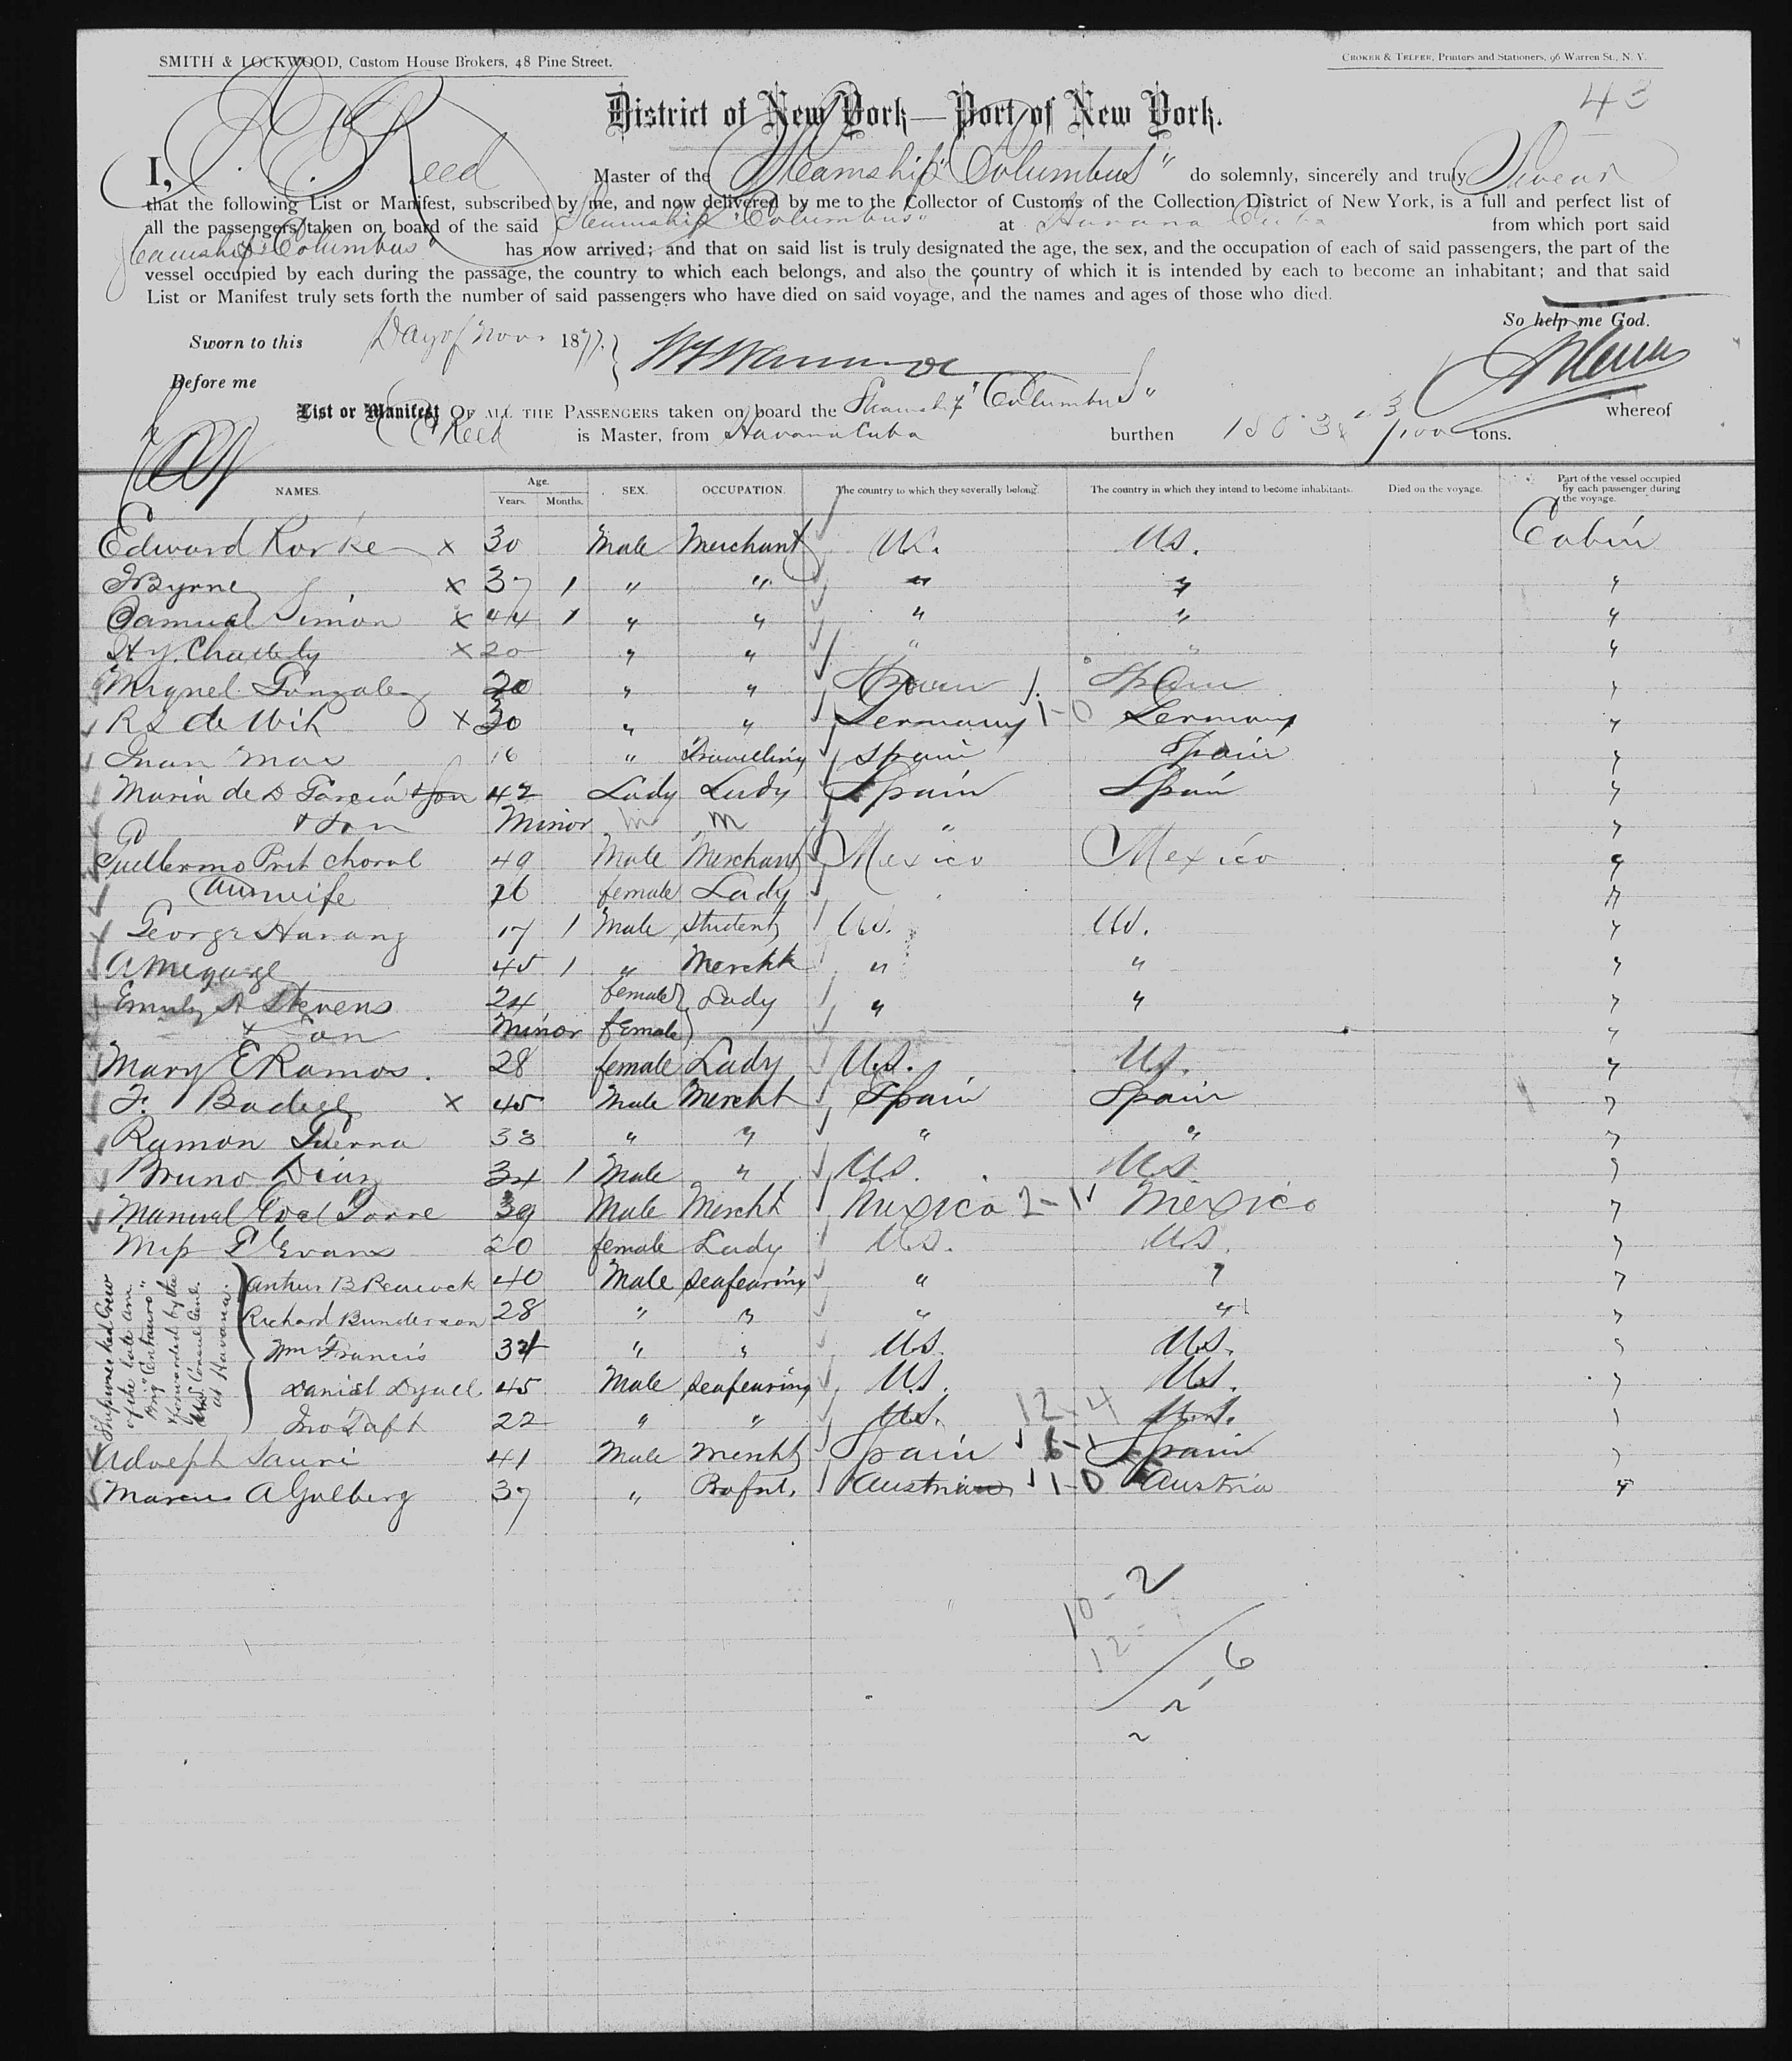 SMITH & LOCKWOOD, Custom House Brokers, 48 Pine Street.
CROKER & TELFER, Printers and Stationers, 96 Warren St., N. Y.
43
District of New York—Port of New York.
I, Reed Master of the Steamship "Columbus" do solemnly, sincerely and truly Swear
that the following List or Manifest, subscribed by me, and now delivered by me to the Collector of Customs of the Collection District of New York, is a full and perfect list of
all the passengers taken on board of the said Steamship "Columbus" at Havana Cuba from which port said
Steamship "Columbus" has now arrived; and that on said list is truly designated the age, the sex, and the occupation of each of said passengers, the part of the
vessel occupied by each during the passage, the country to which each belongs, and also the country of which it is intended by each to become an inhabitant; and that said
List or Manifest truly sets forth the number of said passengers who have died on said voyage, and the names and ages of those who died.
So help me God.
Sworn to this Day of Nov. 1877.
Before me
List or Manifest OF ALL THE PASSENGERS taken on board the Steamship "Columbus" whereof
Reed is Master, from Havana Cuba burthen tons.
NAMES. Age. Years. Months. SEX. OCCUPATION. The country to which they severally belong. The country in which they intend to become inhabitants. Died on the voyage. Part of the vessel occupied by each passenger during the voyage.
Edward Rorke x 30 Male Merchant US. US. Cabin
J Byrne x 37 1 " " " " "
Samual Simon x 44 1 " " " " "
x 20 " " " " "
Miguel Gonzalez 20 " " Spain 1. Spain "
R S de x 30 " " Germany 1-0 Germany "
Juan Mas 16 " Travelling Spain Spain "
Maria de D Garcia & Son 42 Lady Lady Spain Spain "
& Son Minor m m " "
Guillermo choral 49 Male Merchant Mexico Mexico "
wife 26 female Lady " "
George Harang 17 1 Male Student US. US. "
A Megarge 45 1 " Mercht " " "
Emily A Stevens 24 female Lady " " "
& Son Minor female "
Mary E Ramos. 28 female Lady US. US. "
F. x 45 Male Mercht Spain Spain "
Ramon 33 " " " " "
Bruno Diaz 34 1 Male " US. US "
Manuel Torre 39 Male Mercht Mexico 2-1 Mexico "
Miss Evans 20 female Lady US. US. "
Shipwrecked Crew
of the late Am.
Brig "Centauro"
forwarded by the
U.S. Consul Genl.
at Havana.
Arthur B Peacock 40 Male Seafearing " " "
Richard Bunderson 28 " " " " "
Wm Francis 34 " " US. US. "
Daniel Dyall 45 Male Seafearing US. US. "
Jno Taft 22 " " US. 12-4 US. "
Adolph Sauri 41 Male Mercht Spain 6-1 Spain "
Marcus A Golberg 37 " Austria 1-0 Austria "
10-2
12-
6